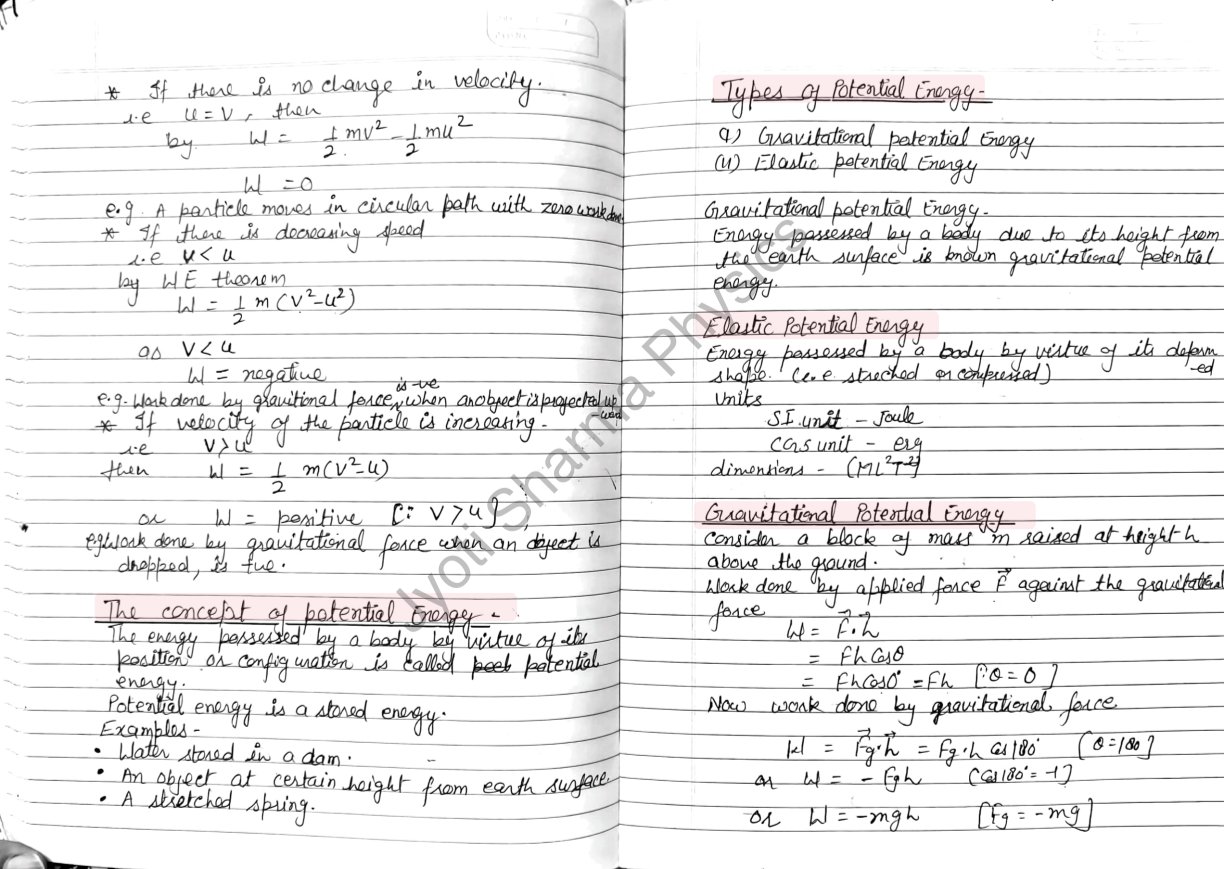 * If there is no change in velocity.
i.e u = v, then
by W = 1/2 mv² - 1/2 mu²
W = 0
e.g. A particle moves in circular path with zero work done.
* If there is decreasing speed
i.e v < u
by WE theorem
W = 1/2 m (v² - u²)
as v < u
W = negative
e.g. Work done by gravitional force is -ve when an object is projected up
-ward
* If velocity of the particle is increasing.
i.e v > u
then W = 1/2 m (v² - u)
or W = positive [∵ v > u]
e.g Work done by gravitational force when an object is
dropped, is +ve.
The concept of potential Energy.
The energy possessed by a body by virtue of its
position or configuration is called potential
energy.
Potential energy is a stored energy.
Examples -
• Water stored in a dam.
• An object at certain height from earth surface.
• A stretched spring.
Types of Potential Energy-
(i) Gravitational potential Energy
(ii) Elastic potential Energy
Gravitational potential Energy.
Energy possessed by a body due to its height from
the earth surface is known gravitational potential
energy.
Elastic Potential Energy
Energy possessed by a body by virtue of its deform
-ed
shape. (i.e. streched or compressed)
Units
S.I. unit - Joule
CGS unit - erg
dimensions - [ML²T⁻²]
Gravitational Potential Energy
Consider a block of mass m raised at height h
above the ground.
Work done by applied force F⃗ against the gravitational
force
W = F⃗.h⃗
= Fh Cosθ
= Fh Cos0° = Fh [∵ θ = 0]
Now work done by gravitational force.
W = F⃗g.h⃗ = Fg.h Cos180° [θ = 180]
or W = - Fgh (Cos180° = -1]
or W = -mgh [Fg = -mg]
Jyoti Sharma Physics